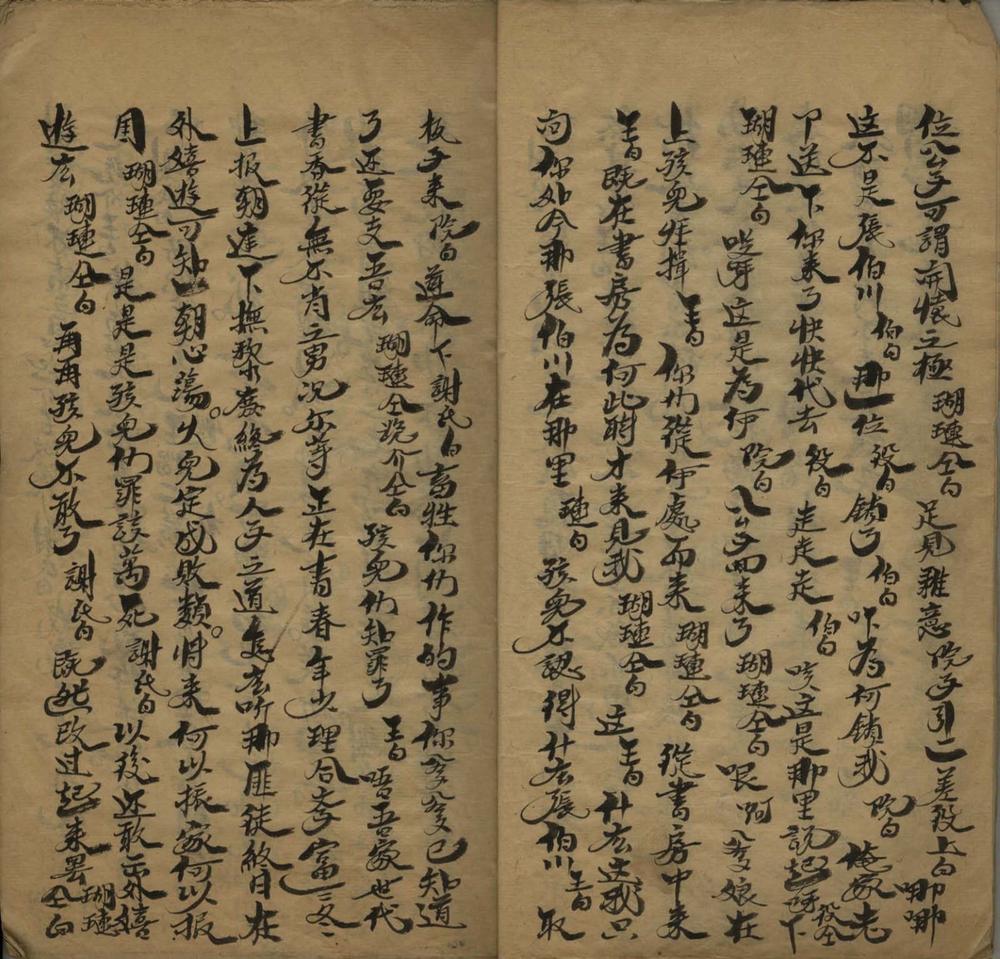 位公子可謂開懷之極瑚璉仝白足見雅意院子引二差役上白哪哪
这不是張伯川伯白那一位役白鎖了伯白咋為何鎖我院白俺家老
下送下你来了快快代去役白走走走伯白哎这是那里説起呀役仝下
瑚璉仝白哎呀这是為伊院白公子回来了瑚璉仝白哏啊爹娘在
上孩兒拜揖王白你們從伊處而来瑚璉仝白從書房中来
王白既在書房為何此時才来見我瑚璉仝白这王白什庅这我只
向你如今那張伯川在那里璉白孩兒不認得什庅張伯川王白取
板子来院白遵命下謝氏白畜牲你們作的事你爹爹已知道
了还要支吾庅瑚璉仝跪介仝白孩兒們知罪了王白唔吾家世代
書香從無不肖之男况尔等正在青春年少理合夸富三冬
上报朝廷下撫黎庶總為人子之道怎庅听那匪徒終日在
外嬉遊可知一朝心蕩。火兒定成敗類。將来何以振家何以报
国瑚璉仝白是是是孩兒們罪該萬死謝氏白以後还敢去外嬉
遊庅瑚璉仝白再再孩兒不敢了謝氏白既然改过起来罢瑚璉仝白